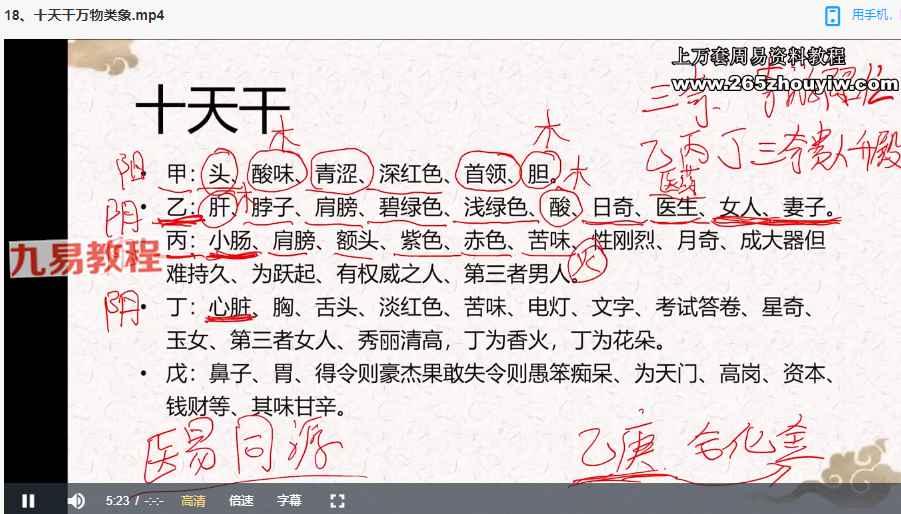 18、十天干万物类象.mp4
用手机,
上万套周易资料教程
www.265zhouyiw.com
十天干
三奇
乙丙丁三奇贵人升殿
木
木
阳
• 甲：头、酸味、青涩、深红色、首领、胆。
木
木
医药
阴
• 乙：肝、脖子、肩膀、碧绿色、浅绿色、酸、日奇、医生、女人、妻子。
九易教程
• 丙：小肠、肩膀、额头、紫色、赤色、苦味、性刚烈、月奇、成大器但
难持久、为跃起、有权威之人、第三者男人。
火
阴
• 丁：心脏、胸、舌头、淡红色、苦味、电灯、文字、考试答卷、星奇、
玉女、第三者女人、秀丽清高，丁为香火，丁为花朵。
• 戊：鼻子、胃、得令则豪杰果敢失令则愚笨痴呆、为天门、高岗、资本、
钱财等、其味甘辛。
医易同源
乙庚合化金
5:23 / -:-:-
高清
倍速
字幕